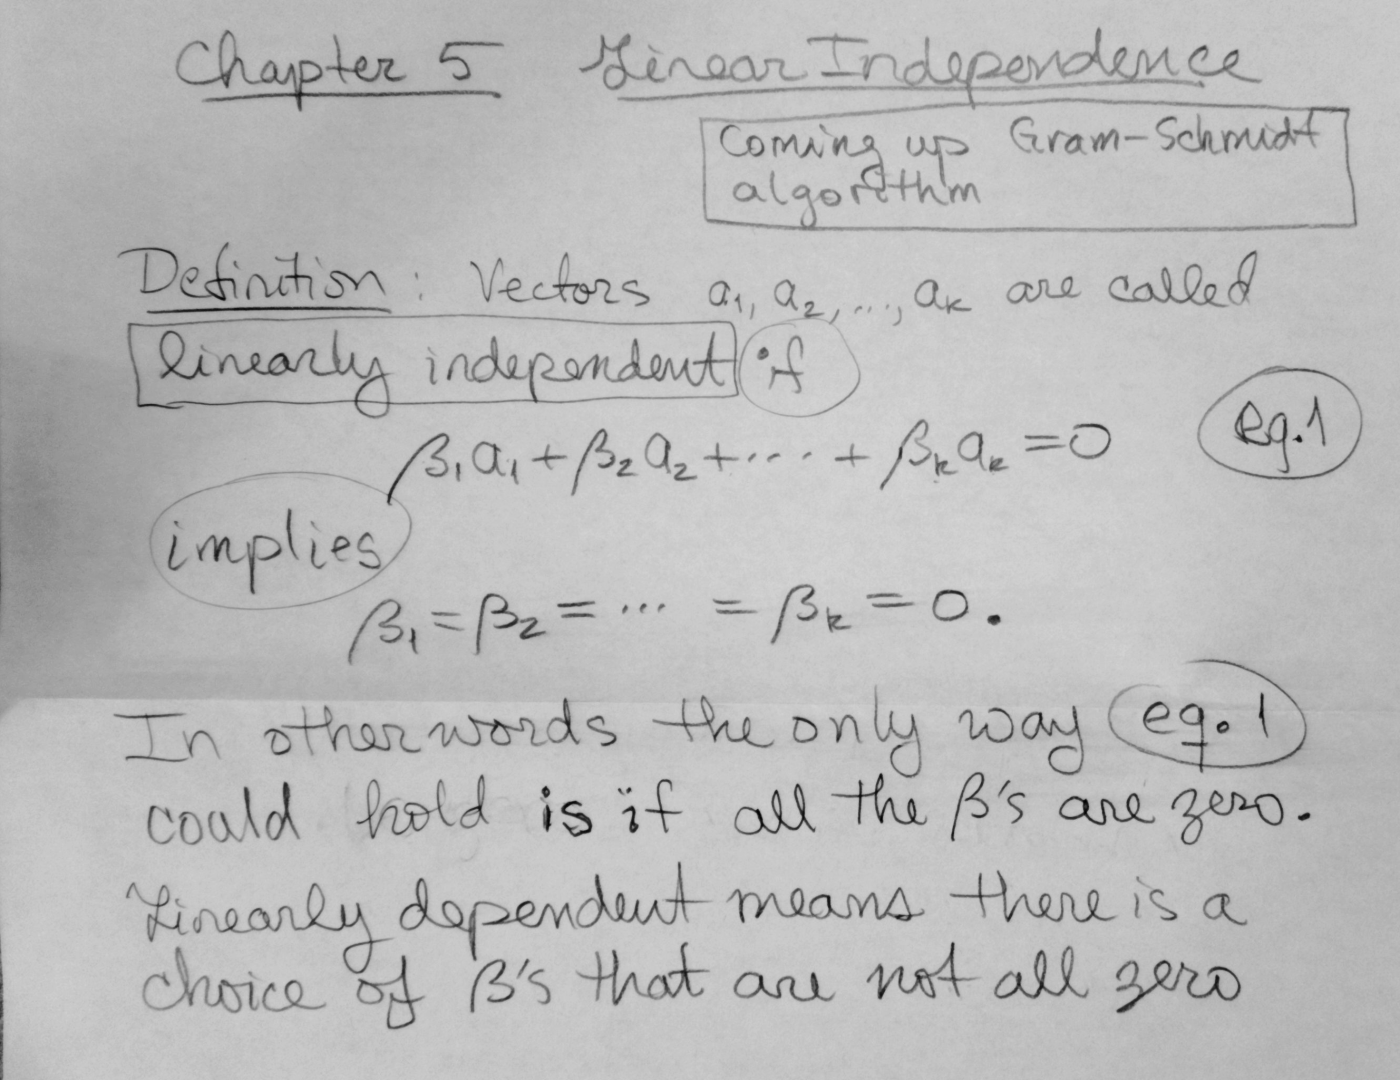 Chapter 5 Linear Independence
Coming up Gram-Schmidt
algorithm
Definition: Vectors a₁, a₂, ..., aₖ are called
linearly independent if
β₁a₁ + β₂a₂ + ···· + βₖaₖ = 0 eq.1
implies
β₁ = β₂ = ··· = βₖ = 0.
In other words the only way eq. 1
could hold is if all the β's are zero.
Linearly dependent means there is a
choice of β's that are not all zero